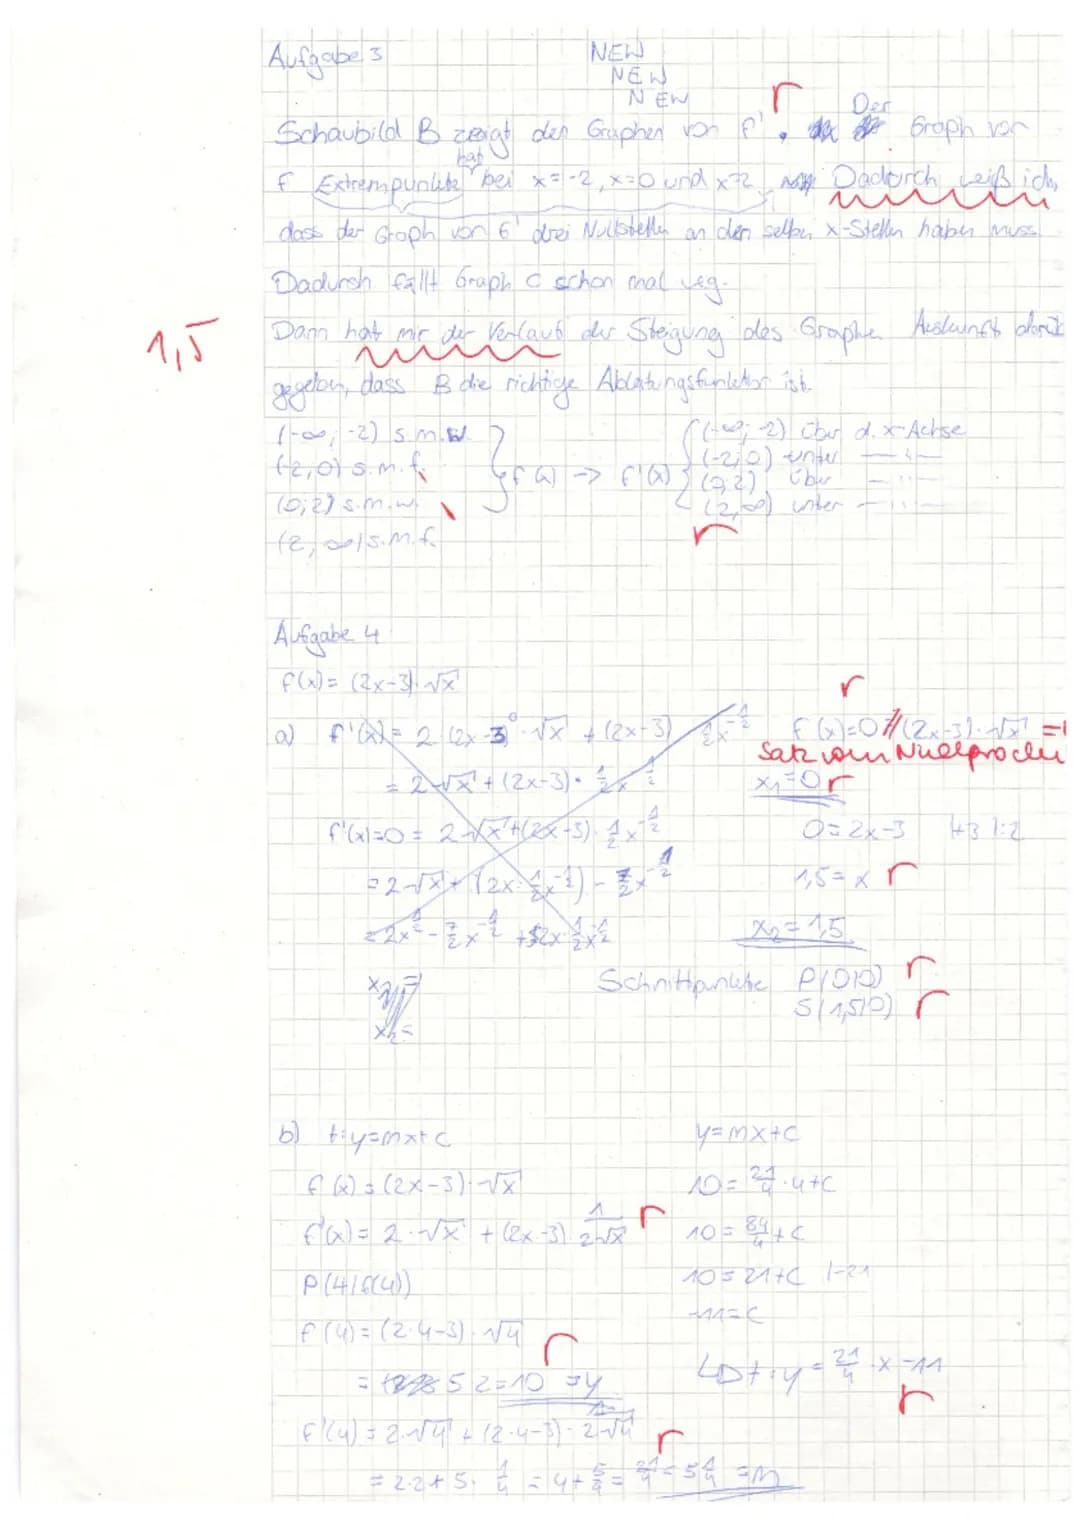 Aufgabe 3
NEW
NEW
NEW
Schaubild B zeigt den Graphen von f'. Der Graph von
f hat Extrempunkte bei x=-2, x=0 und x=2. Dadurch weiß ich,
dass der Graph von f' drei Nullstellen an den selben x-Stellen haben muss.
Dadursh fällt Graph C schon mal weg.
1,5
Dann hat mir der Verlauf der Steigung des Graphen Auskunft
gegeben, dass B die richtige Ableitungsfunktion ist.
(-∞; -2) s.m.w.
(-2, 0) s.m.f.
(0; 2) s.m.w.
(2, ∞) s.m.f.
f(x) → f'(x)
(-∞; -2) über d. x-Achse
(-2; 0) unter —"—
(0; 2) über —"—
(2, ∞) unter —"—
Aufgabe 4
f(x) = (2x-3)·√x
a) f'(x) = 2 (2x-3)⁰·√x + (2x-3) ½x^-½
= 2·√x + (2x-3)·½x^-½
f'(x)=0 = 2·√x+(2x-3)·½x^-½
f(x)=0 (2x-3)·√x =
Satz vom Nullprodu
x₁=0
0=2x-3 |+3 |:2
1,5=x
x₂=1,5
Schnittpunkte P(0|0)
S(1,5|0)
b) t:y=mx+c
f(x)=(2x-3)·√x
f'(x)= 2·√x + (2x-3)·1/(2√x)
P(4|f(4))
f(4)=(2·4-3)·√4
= 5·2=10 =y
f'(4)=2·√4 + (2·4-3)·1/(2·√4)
= 2·2+5·¼ = 4+5/4 = 21/4 = 5¼ =m
y=mx+c
10=21/4·4+c
10=84/4+c
10=21+c |-21
-11=c
↳ t:y=21/4·x-11